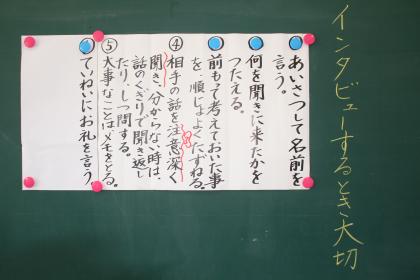 インタビューするとき大切
あいさつして名前を
言う。
何を聞きに来たかを
つたえる。
前もって考えておいた事
を、順じょよくたずねる。
④相手の話を注意深く
聞き、分からない時は、
話のくぎりで聞き返し
たり、しつ問する。
⑤大事なことはメモをとる。
ていねいにお礼を言う。